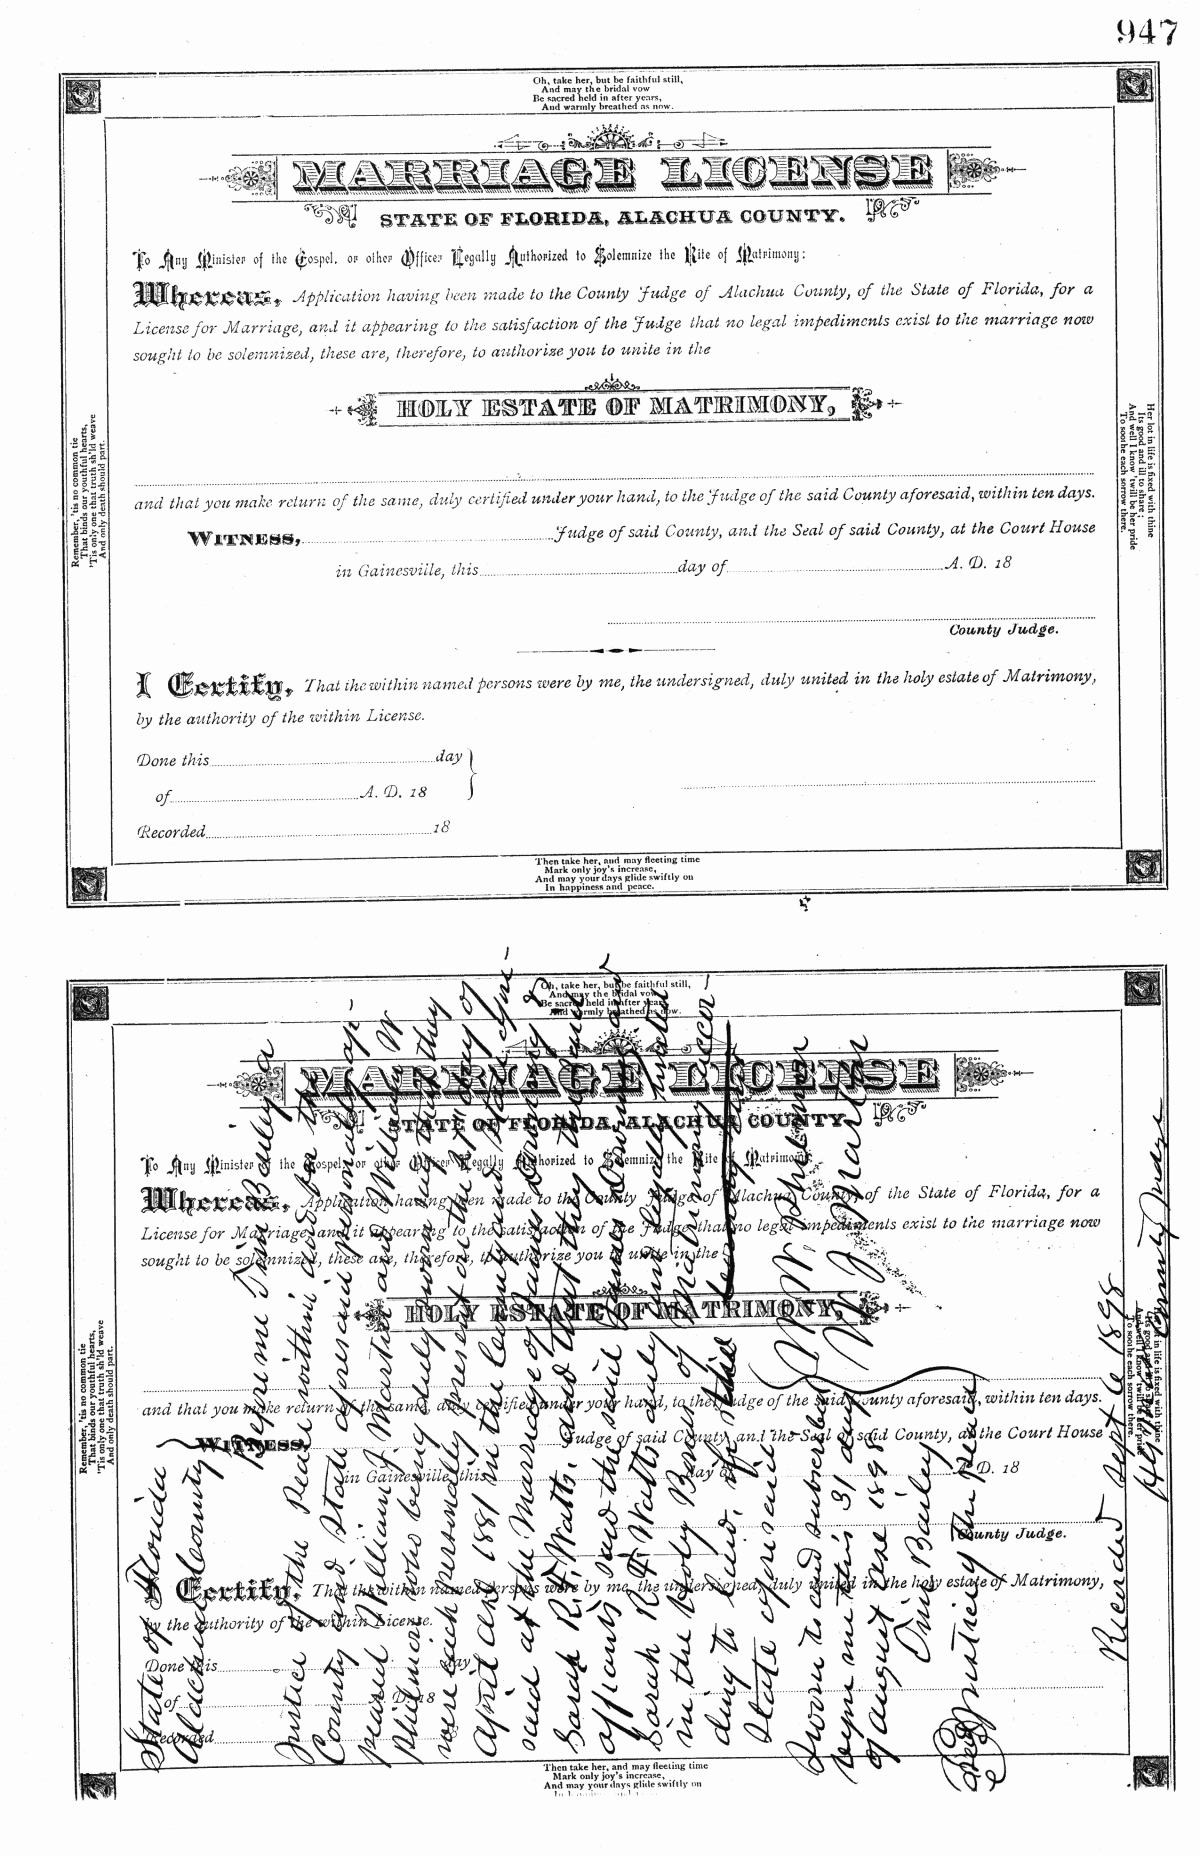 947
Oh, take her, but be faithful still,
And may the bridal vow
Be sacred held in after years,
And warmly breathed as now.
MARRIAGE LICENSE
STATE OF FLORIDA, ALACHUA COUNTY.
To Any Minister of the Gospel, or other Officer Legally Authorized to Solemnize the Rite of Matrimony:
Whereas, Application having been made to the County Judge of Alachua County, of the State of Florida, for a
License for Marriage, and it appearing to the satisfaction of the Judge that no legal impediments exist to the marriage now
sought to be solemnized, these are, therefore, to authorize you to unite in the
HOLY ESTATE OF MATRIMONY,
and that you make return of the same, duly certified under your hand, to the Judge of the said County aforesaid, within ten days.
WITNESS, Judge of said County, and the Seal of said County, at the Court House
in Gainesville, this day of A. D. 18
County Judge.
I Certify, That the within named persons were by me, the undersigned, duly united in the holy estate of Matrimony,
by the authority of the within License.
Done this day
of A. D. 18
Recorded 18
Remember, 'tis no common tie
That binds our youthful hearts,
'Tis only one that truth sh'ld weave
And only death should part.
Her lot in life is fixed with thine
Its good and ill to share;
And well I know 'twill be her pride
To soothe each sorrow there.
Then take her, and may fleeting time
Mark only joy's increase,
And may your days glide swiftly on
In happiness and peace.
Oh, take her, but be faithful still,
And may the bridal vow
Be sacred held in after years,
And warmly breathed as now.
MARRIAGE LICENSE
STATE OF FLORIDA, ALACHUA COUNTY.
To Any Minister of the Gospel, or other Officer Legally Authorized to Solemnize the Rite of Matrimony:
Whereas, Application having been made to the County Judge of Alachua County, of the State of Florida, for a
License for Marriage, and it appearing to the satisfaction of the Judge that no legal impediments exist to the marriage now
sought to be solemnized, these are, therefore, to authorize you to unite in the
HOLY ESTATE OF MATRIMONY,
and that you make return of the same, duly certified under your hand, to the Judge of the said County aforesaid, within ten days.
WITNESS, Judge of said County, and the Seal of said County, at the Court House
in Gainesville, this day of A. D. 18
County Judge.
I Certify, That the within named persons were by me, the undersigned, duly united in the holy estate of Matrimony,
by the authority of the within License.
Done this day
of A. D. 18
Recorded
Remember, 'tis no common tie
That binds our youthful hearts,
'Tis only one that truth sh'ld weave
And only death should part.
Then take her, and may fleeting time
Mark only joy's increase,
And may your days glide swiftly on
State of Florida
Alachua County
Before me Tim Bailey a
Justice of the Peace within and for the
County and State aforesaid personally ap-
peared William J Martin and William W
Philmore who being duly sworn says that they
were each personally present on the day of
April AD 1881 in the County and State afore-
said at the Marriage of &
Sarah R. Watts. and that they the said
affiants said the said and
Sarah R Watts duly and legally united
in the Holy Bonds of Matrimony accor-
ding to Law, of the
State aforesaid
W W Philmore
W J Martin
Sworn to and subscribed
before me this 31 day
of august AD 1898
Tim Bailey
Justice of the Peace
Recorded Sept 6 1898
County Judge